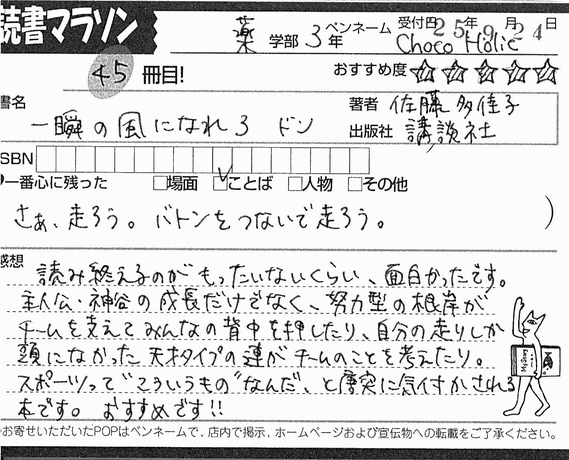 読書マラソン
薬 学部 3 年 ペンネーム Choco Holic 受付日 25年 9月 24日
45 冊目!
おすすめ度 ☆☆☆☆☆
書名 一瞬の風になれ3 ドン
著者 佐藤多佳子
出版社 講談社
SBN
一番心に残った □場面 ☑ことば □人物 □その他
さぁ、走ろう。バトンをつないで走ろう。 )
感想
読み終えるのがもったいないくらい、面白かったです。
主人公・神谷の成長だけでなく、努力型の根岸が
チームを支えてみんなの背中を押したり、自分の走りしか
頭になかった天才タイプの連がチームのことを考えたり。
スポーツって"こういうもの"なんだ、と唐突に気付かされる
本です。おすすめです!!
お寄せいただいたPOPはペンネームで、店内で掲示、ホームページおよび宣伝物への転載をご了承ください。